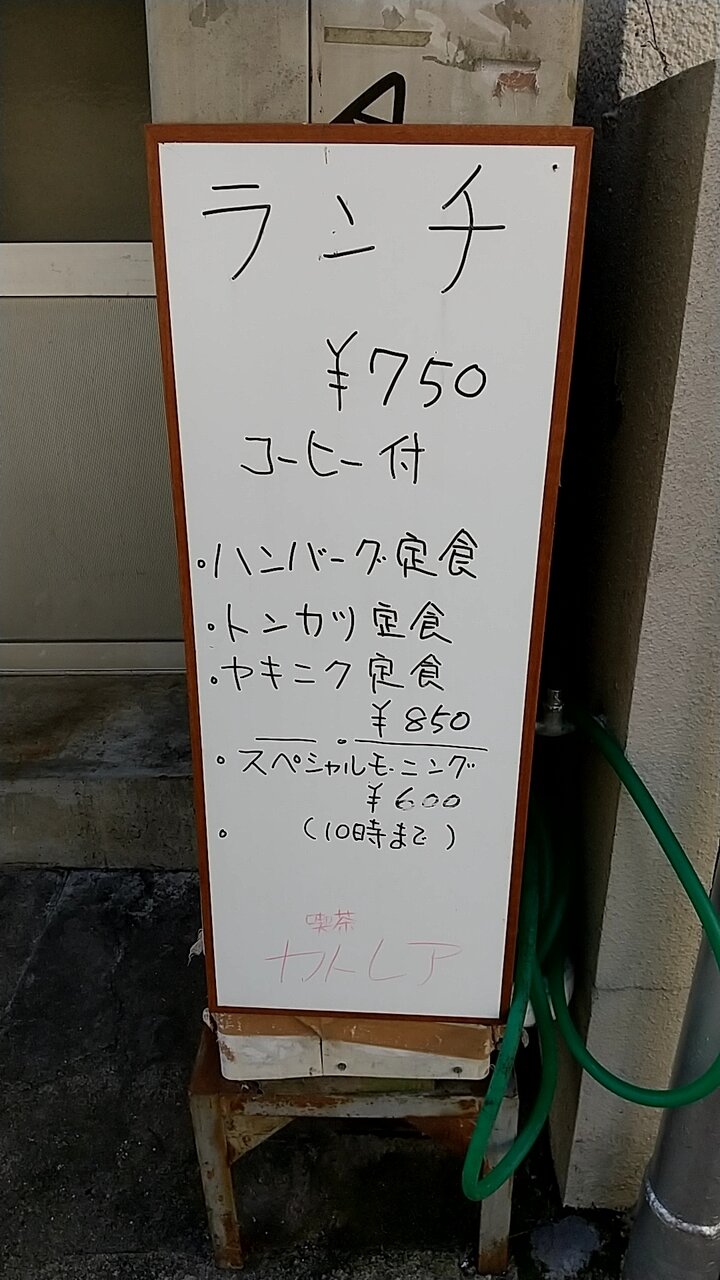 ランチ
¥750
コーヒー付
・ハンバーグ定食
・トンカツ定食
・ヤキニク定食
¥850
・スペシャルモーニング
¥600
・ (10時まで)
喫茶
カトレア